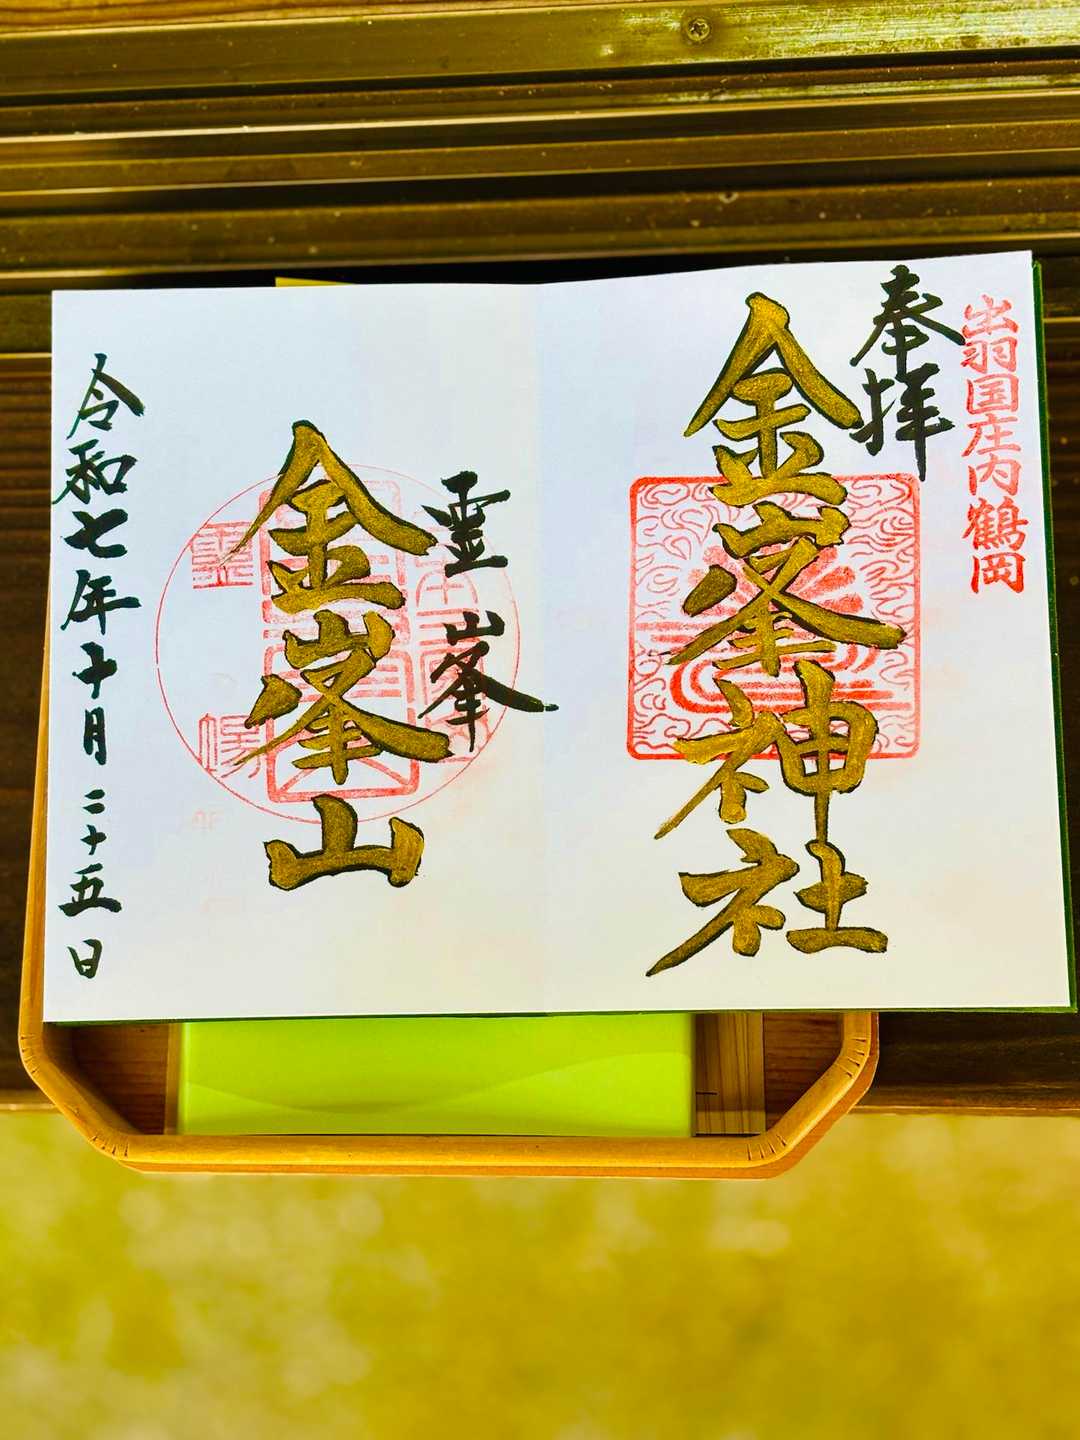 出羽国庄内鶴岡
奉拝
金峯神社
霊峯
金峯山
令和七年十月二十五日